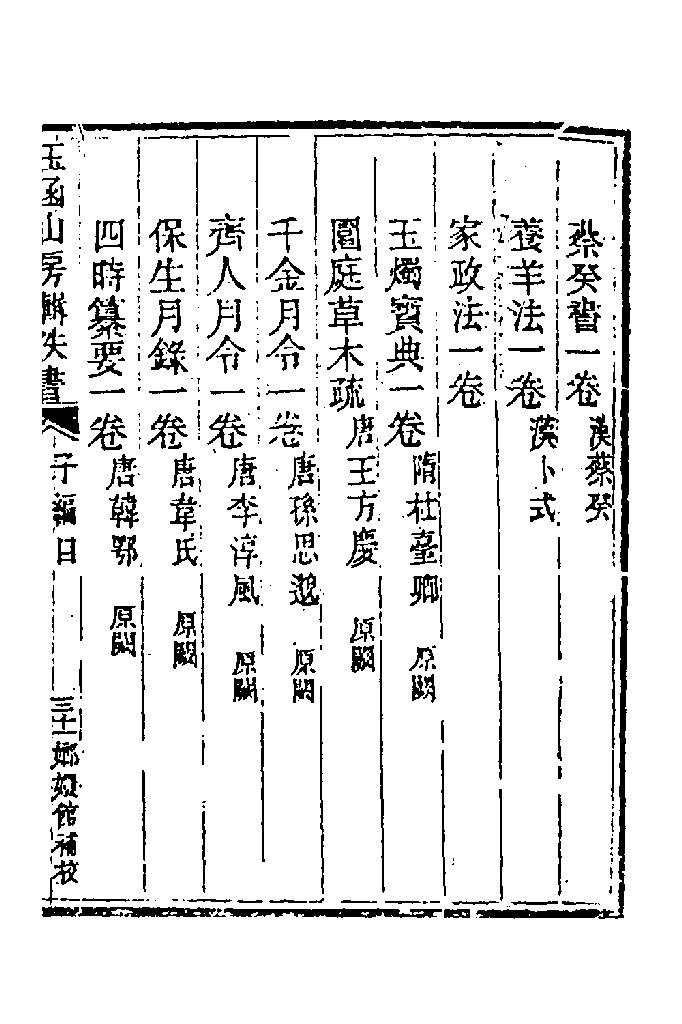 蔡癸書一卷 漢蔡癸
養羊法一卷 漢卜式
家政法一卷
玉燭寶典一卷 隋杜臺卿 原闕
園庭草木疏 唐王方慶 原闕
千金月令一卷 唐孫思邈 原闕
齊人月令一卷 唐李淳風 原闕
保生月錄一卷 唐韋氏 原闕
四時纂要一卷 唐韓鄂 原闕
玉函山房輯佚書 子編目 三十 嫏嬛館補校